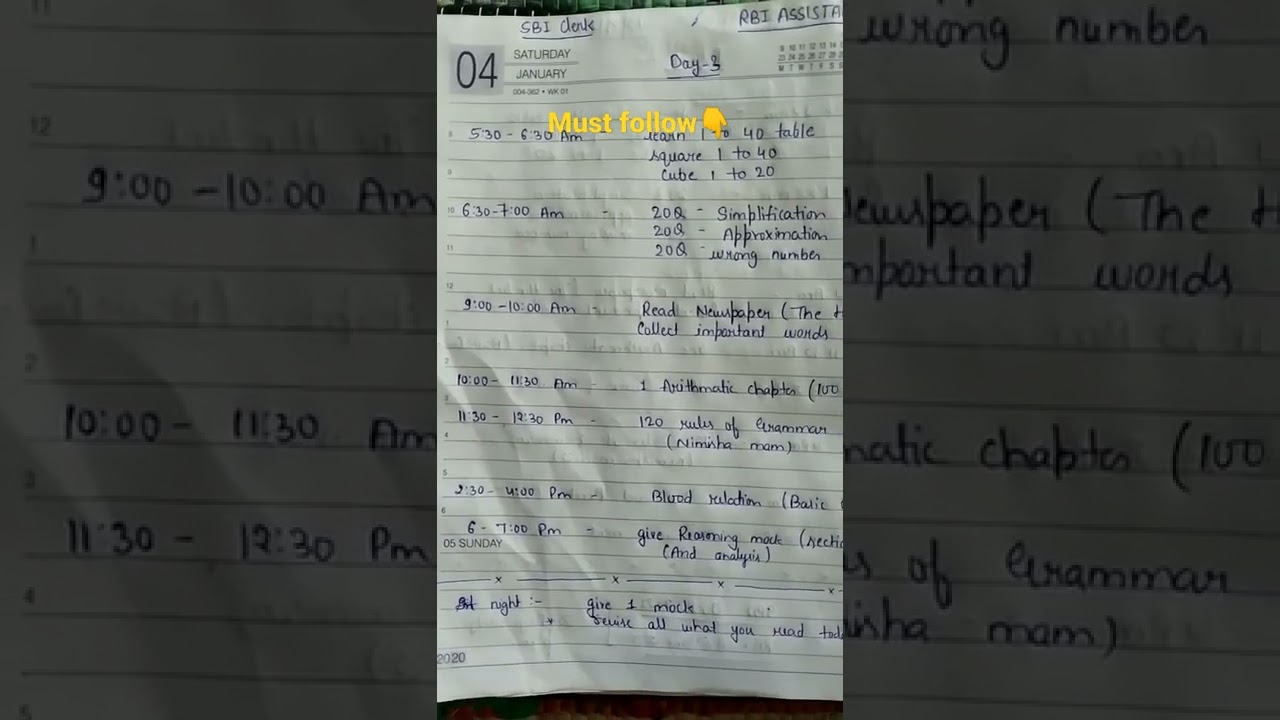 SBI Clerk , RBI ASSISTA
04 SATURDAY
JANUARY
004-362 • WK 01
Day-3
9 10 11 12 13 14
23 24 25 26 27 28
M T W T F S S
Must follow👇
8 5:30 - 6:30 Am - learn 1 to 40 table
square 1 to 40
9 Cube 1 to 20
10 6:30-7:00 Am - 20Q - Simplification
20Q - Approximation
11 20Q - wrong number
12
9:00 -10:00 Am - Read Newspaper (The H
1 Collect important words
2
10:00 - 11:30 Am - 1 Arithmatic chapter (100
3
11:30 - 12:30 Pm - 120 rules of Grammar
4 (Nimisha mam)
5
2:30 - 4:00 Pm - Blood relation (Basic
6
6 - 7:00 Pm - give Reasoning mock (secti
05 SUNDAY (And analysis)
x x x x
At night :- give 1 mock
* revise all what you read toda
2020
11
12
9:00 -10:00 Am
1
2
10:00 - 11:30 Am
3
11:30 - 12:30 Pm
4
5
wrong number
ewspaper (The H
mportant words
matic chapter (100
s of Grammar
isha mam)